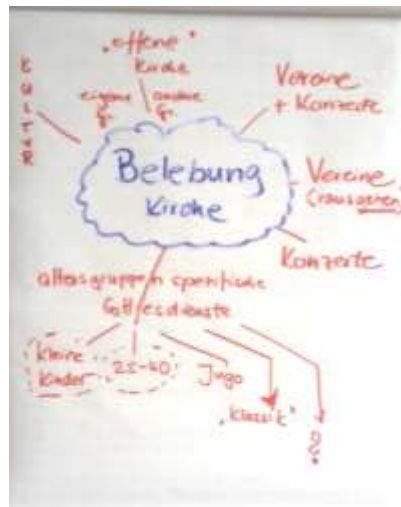 "offene"
Kirche
KULTUR
eigene G.
andere G.
Vereine
+ Konzerte
Belebung
Kirche
Vereine
(rausgehen)
Konzerte
altersgruppen spezifische
Gottesdienste
kleine
Kinder
25-40
Jugo
"Klassik"
?